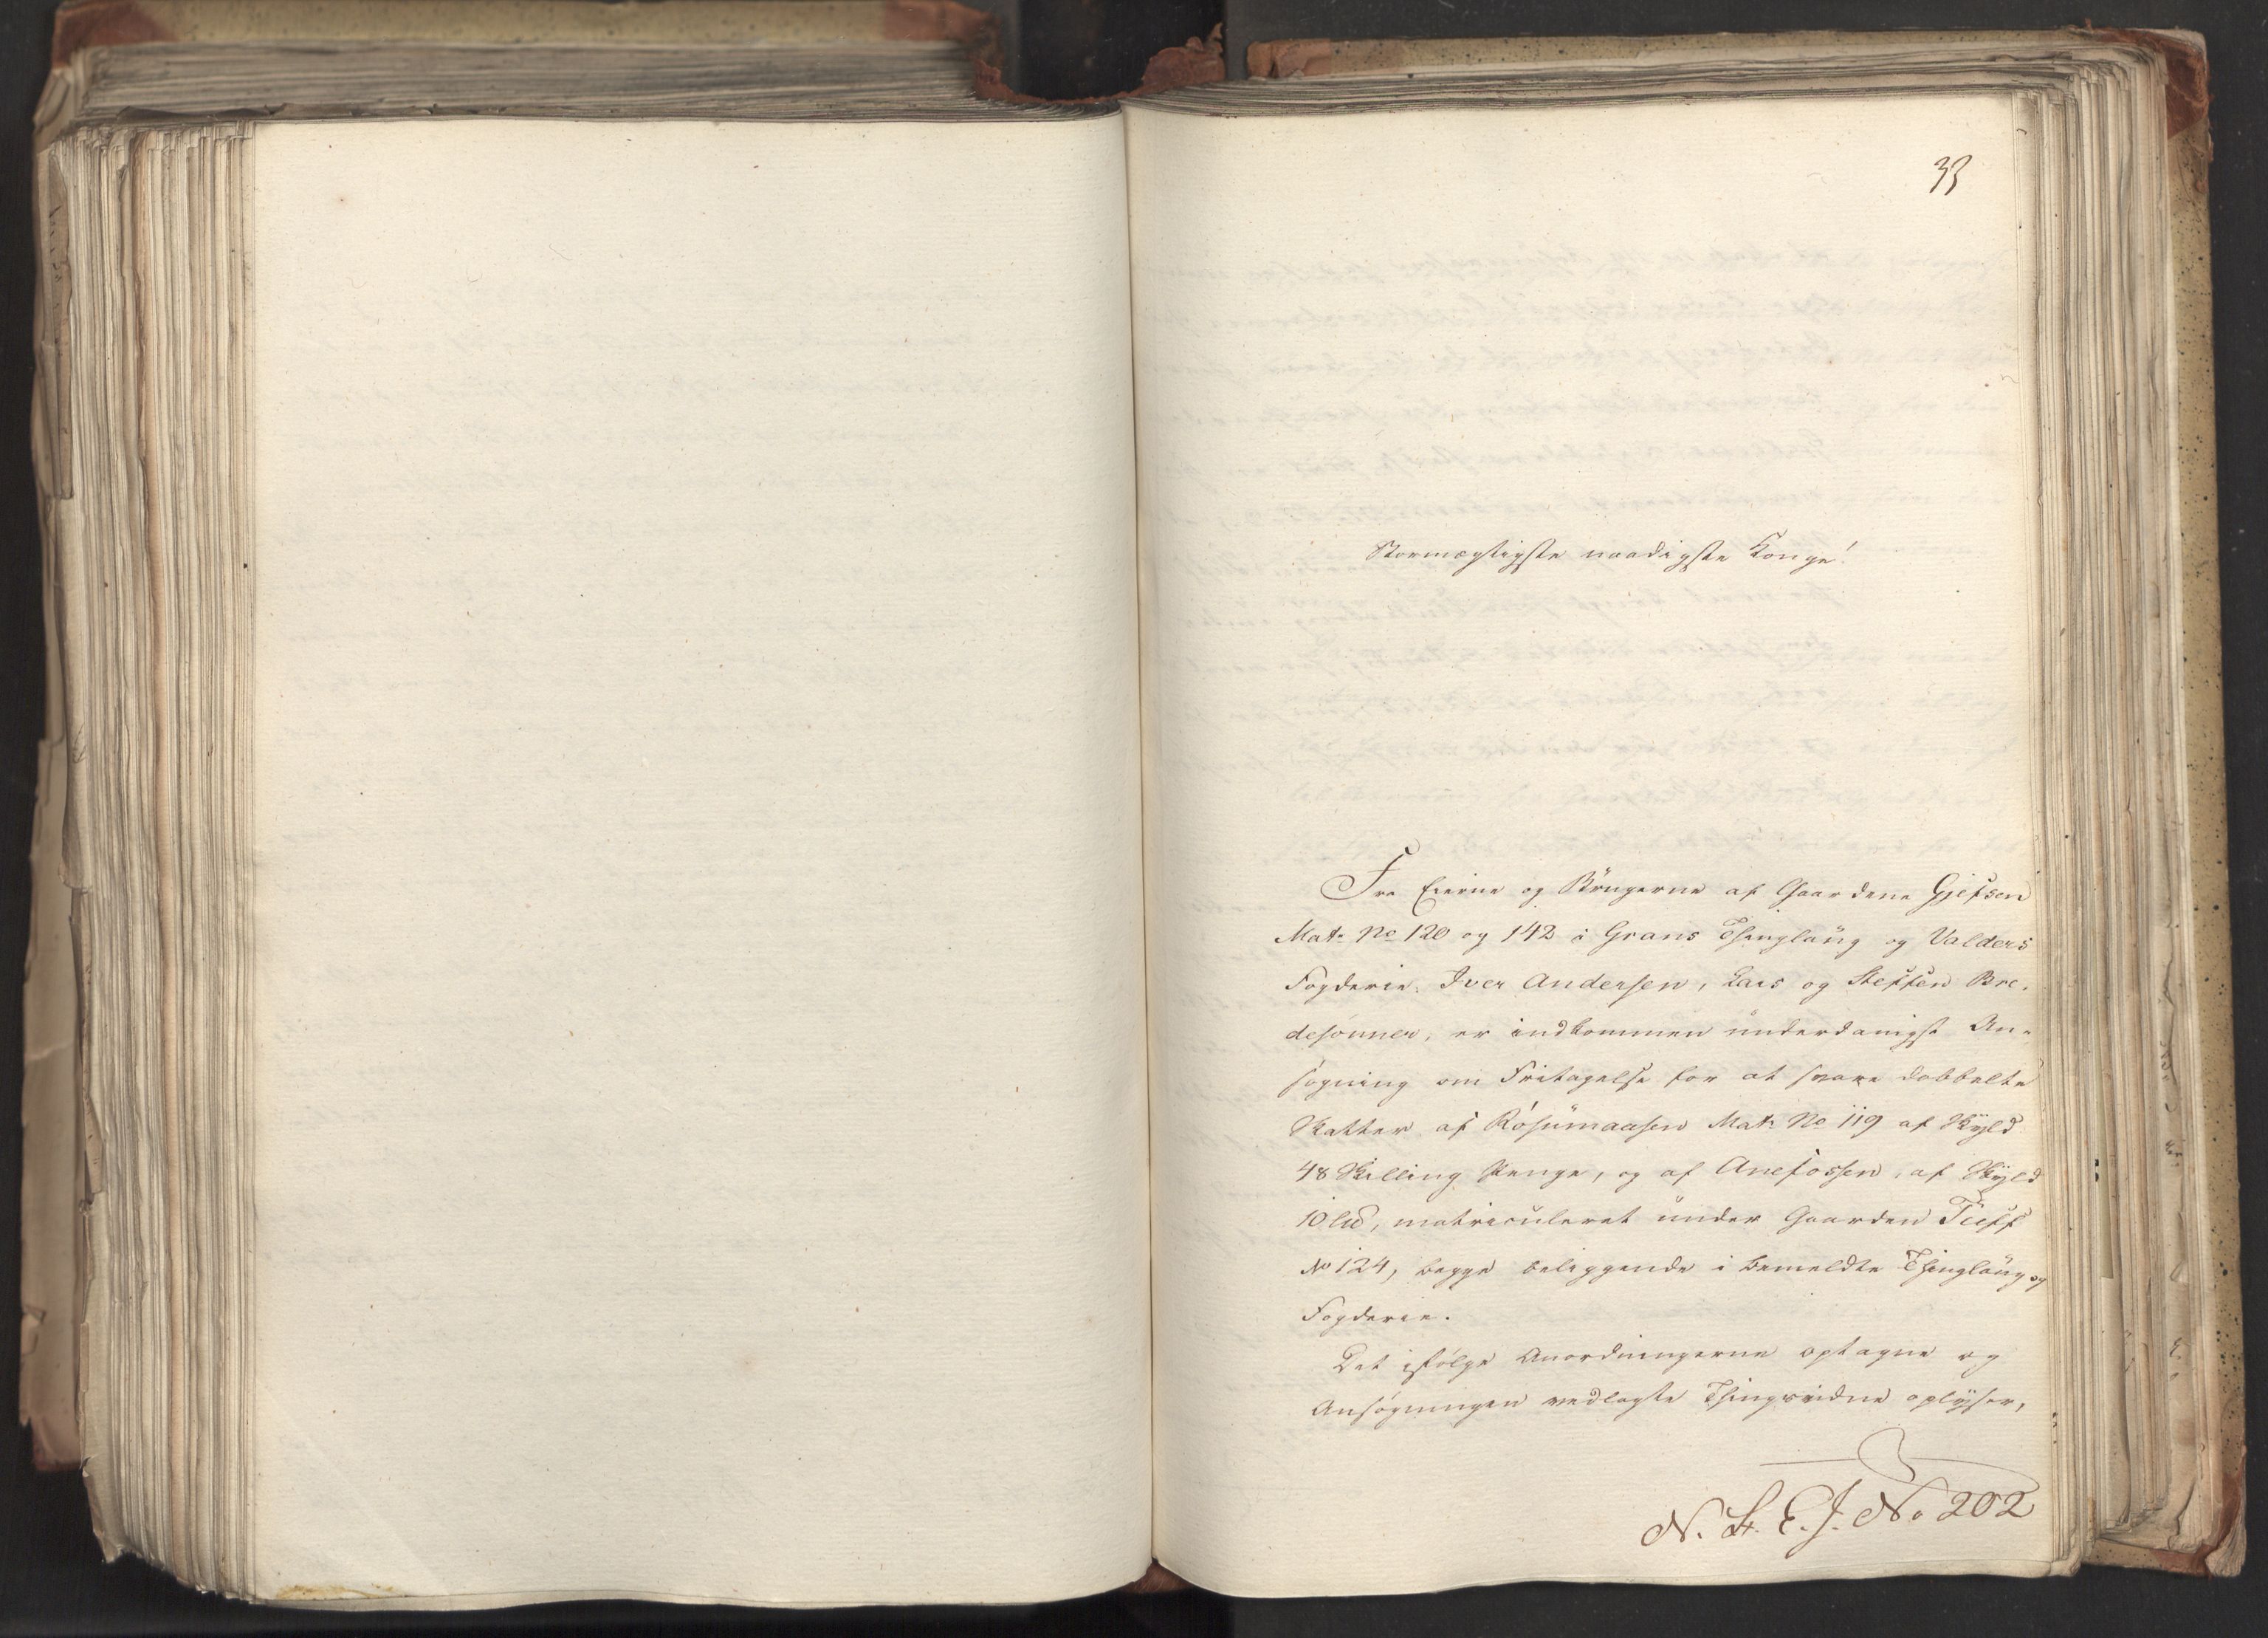 33
Stormægtigste naadigste Konge!
Fra Eierne og Brugerne af Gaardene Gjefsen
Mat: No 120 og 142 i Grans Thinglaug og Valders
Fogderie, Iver Andersen, Lars og Steffen Bre-
desønner, er indkommen underdanigst An-
søgning om Fritagelse for at svare dobbelte
Skatter af Rosumaasen Mat: No 119 af Skyld
48 Skilling Penge, og af Anefossen, af Skyld
10 l℔, matriculeret under Gaarden Tuff
No 124, begge beliggende i bemeldte Thinglaug og
Fogderie.
Det ifølge Anordningerne optagne og
Ansøgningen vedlagte Thingsvidne oplyser,
N. St. E. J. No 202